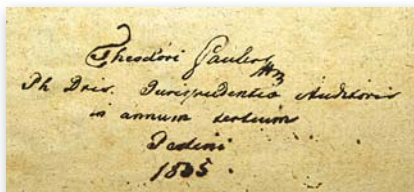 Theodori Pauler mp
Ph Dris. Jurisprudentia Auditoris
in annum tertium
Pestini
1835.